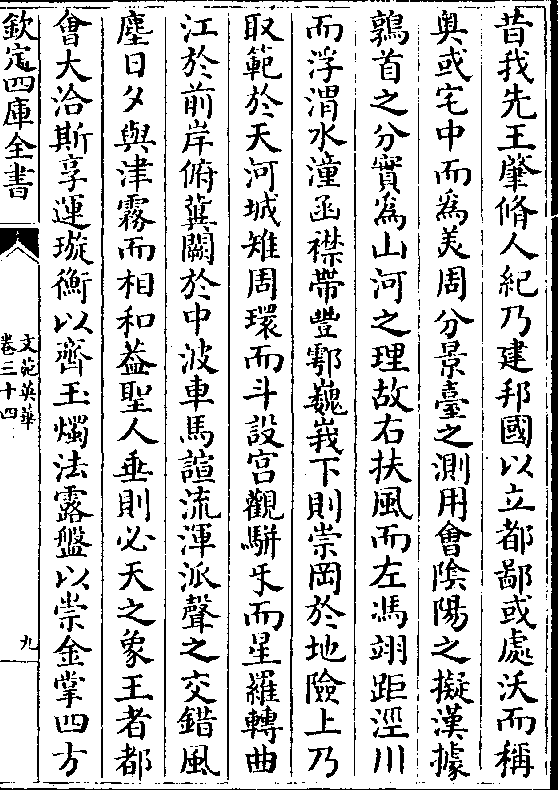 昔我先王肇脩人紀乃建邦國以立都鄙或處沃而稱
奥或宅中而為美周分景臺之測用會隂陽之擬漢據
鶉首之分實為山河之理故右扶風而左馮翊距涇川
而浮渭水潼函襟帶豐鄠巍峩下則崇岡於地險上乃
取範於天河城雉周環而斗設宫觀駢㸦而星羅轉曲
江於前岸俯冀闕於中波車馬諠流渾派聲之交錯風
塵日夕與津霧而相和葢聖人垂則必天之象王者都
㑹大洽斯享運璇衡以齊玉燭法露盤以崇金掌四方
欽定四庫全書
文苑英華
卷三十四
九